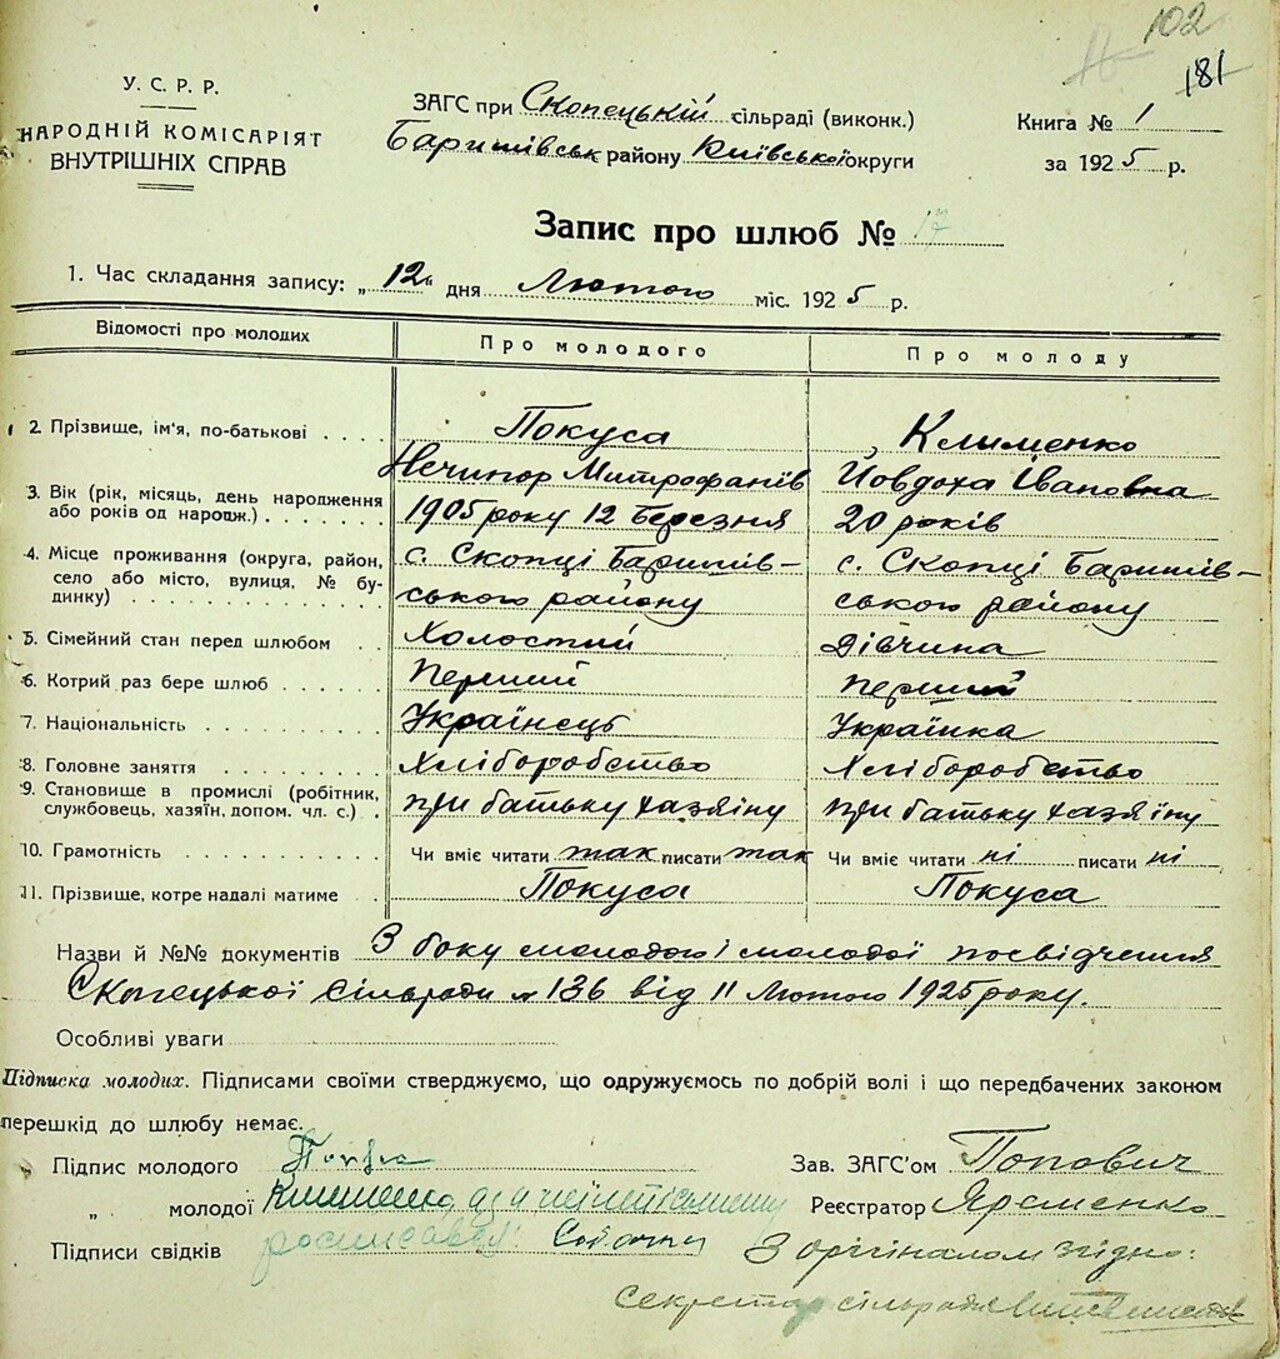 102
181
У. С. Р. Р.
НАРОДНІЙ КОМІСАРІЯТ
ВНУТРІШНІХ СПРАВ
ЗАГС при Скопецькій сільраді (виконк.)
Баришівськ району Київської округи
Книга № 1
за 1925 р.
Запис про шлюб № 17
1. Час складання запису: „12“ дня Лютого міс. 1925 р.
Відомості про молодих Про молодого Про молоду
2. Прізвище, ім'я, по-батькові . . . . Покуса Клименко
Нечипор Митрофанів Йовдоха Івановна
3. Вік (рік, місяць, день народження
або років од народж.) . . . . . . . 1905 року 12 Березня 20 років
4. Місце проживання (округа, район, с. Скопці Баришів- с. Скопці Баришів-
село або місто, вулиця, № бу-
динку) . . . . . . . . . . . . . ського району ського району
5. Сімейний стан перед шлюбом . . Холостий Дівчина
6. Котрий раз бере шлюб . . . . . . Перший перший
7. Національність . . . . . . . . . . Українець Українка
8. Головне заняття . . . . . . . . . Хліборобство Хліборобство
9. Становище в промислі (робітник,
службовець, хазяїн, допом. чл. с.) . при батьку хазяїну при батьку хазяїну
10. Грамотність . . . . . . . . . . . Чи вміє читати так писати так Чи вміє читати ні писати ні
11. Прізвище, котре надалі матиме . Покуса Покуса
Назви й №№ документів З боку молодого і молодої посвідчення
Скопецької сільради № 136 від 11 Лютого 1925 року.
Особливі уваги
Підписка молодих. Підписами своїми стверджуємо, що одружуємось по добрій волі і що передбачених законом
перешкід до шлюбу немає.
Підпис молодого
Зав. ЗАГС'ом Попович
„ молодої Клименко, за
Реєстратор Яременко
Підписи свідків
З оригіналом згідно:
Секретар сільради